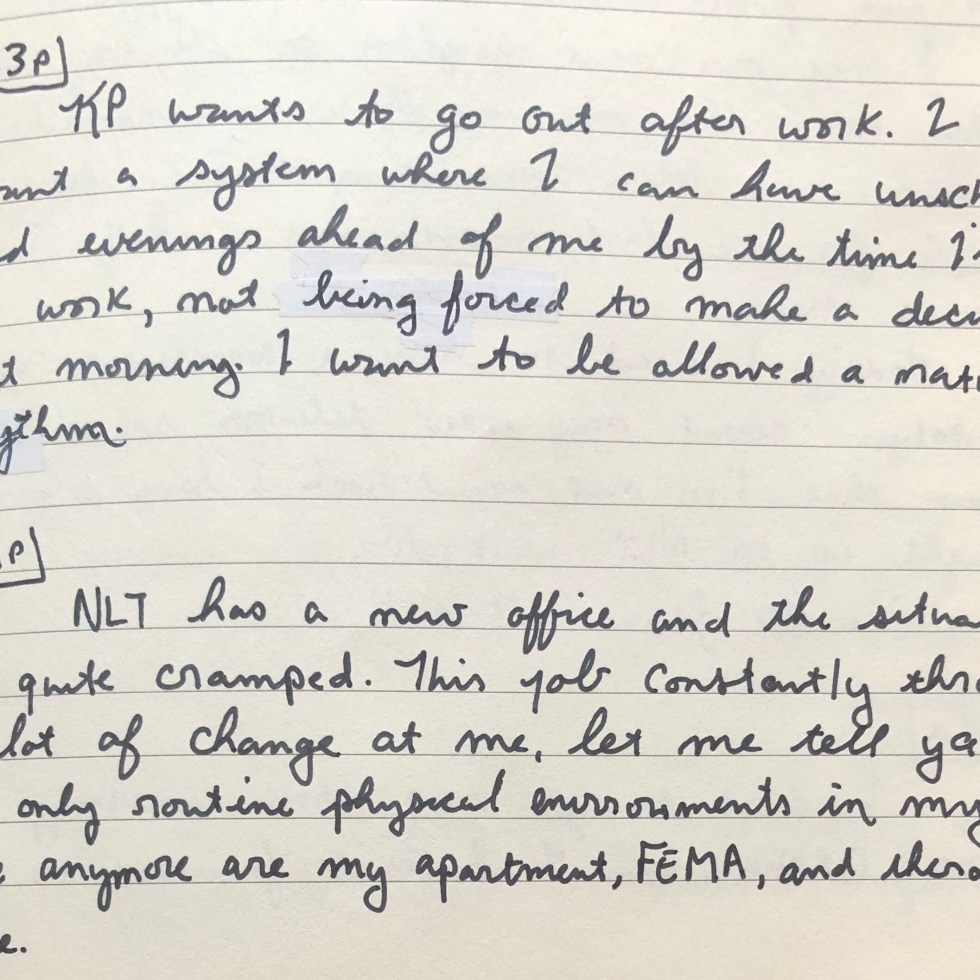 3P
KP wants to go out after work. I
ant a system where I can have unsch
d evenings ahead of me by the time I'
work, not being forced to make a deci
t morning. I want to be allowed a nat
ythm.
P
NLT has a new office and the situa
quite cramped. This job constantly thr
lot of change at me, let me tell ya
only routine physical environments in my
e anymore are my apartment, FEMA, and
e.